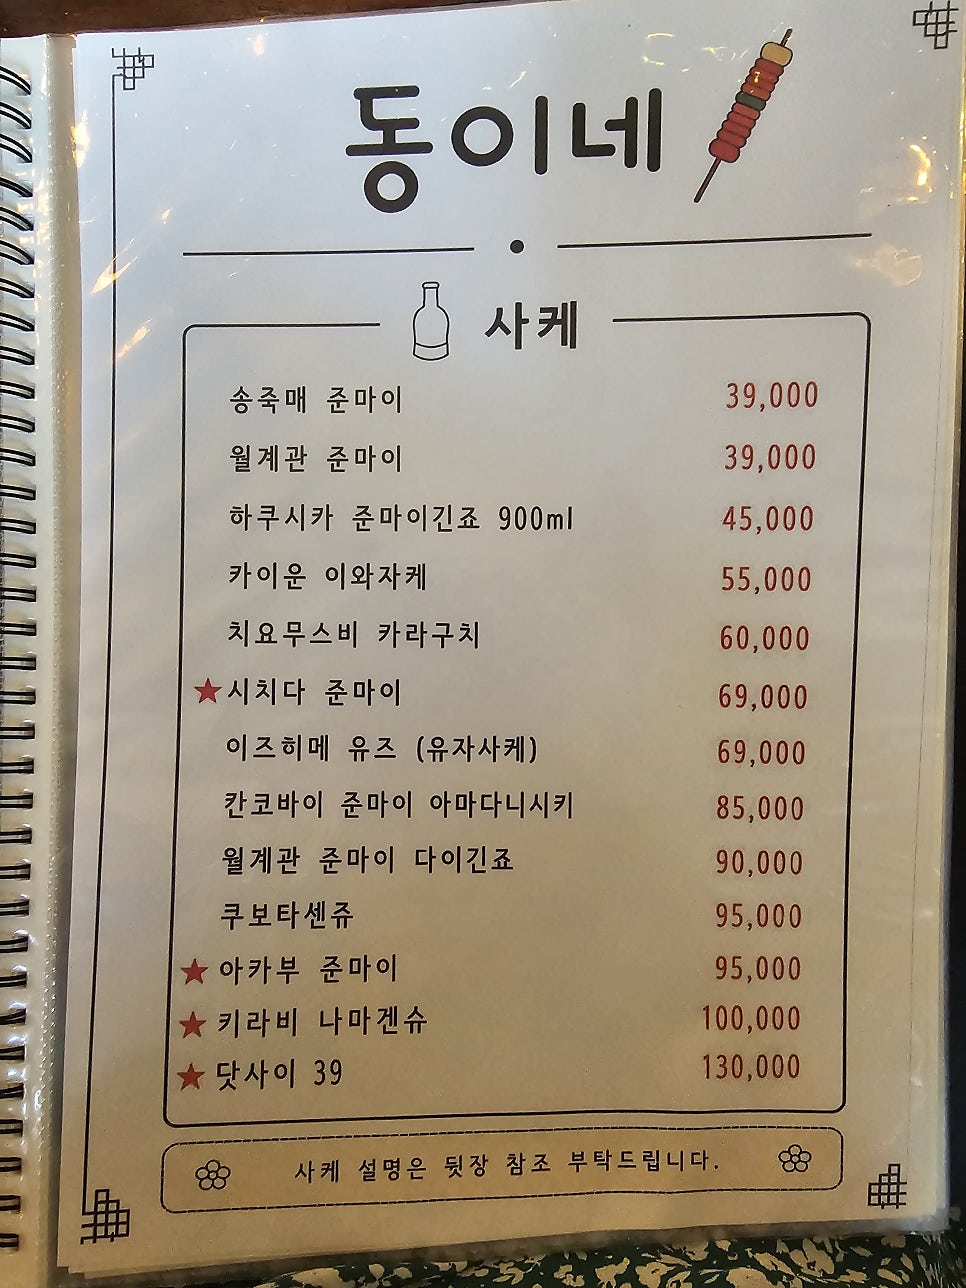 동이네
사케
송죽매 준마이 39,000
월계관 준마이 39,000
하쿠시카 준마이긴죠 900ml 45,000
카이운 이와자케 55,000
치요무스비 카라구치 60,000
★시치다 준마이 69,000
이즈히메 유즈 (유자사케) 69,000
칸코바이 준마이 아마다니시키 85,000
월계관 준마이 다이긴죠 90,000
쿠보타센쥬 95,000
★아카부 준마이 95,000
★키라비 나마겐슈 100,000
★닷사이 39 130,000
사케 설명은 뒷장 참조 부탁드립니다.